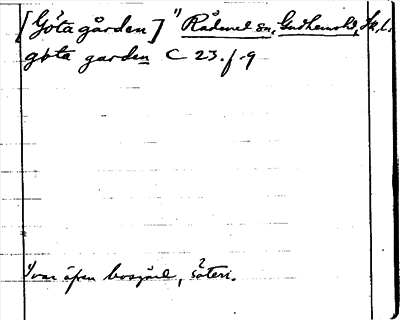 [Göta gården] 1) Rådene sn, Gudhems hd, Sk. l.
göta garden C 23. f. 9
1) var äfven bosgård, säteri.